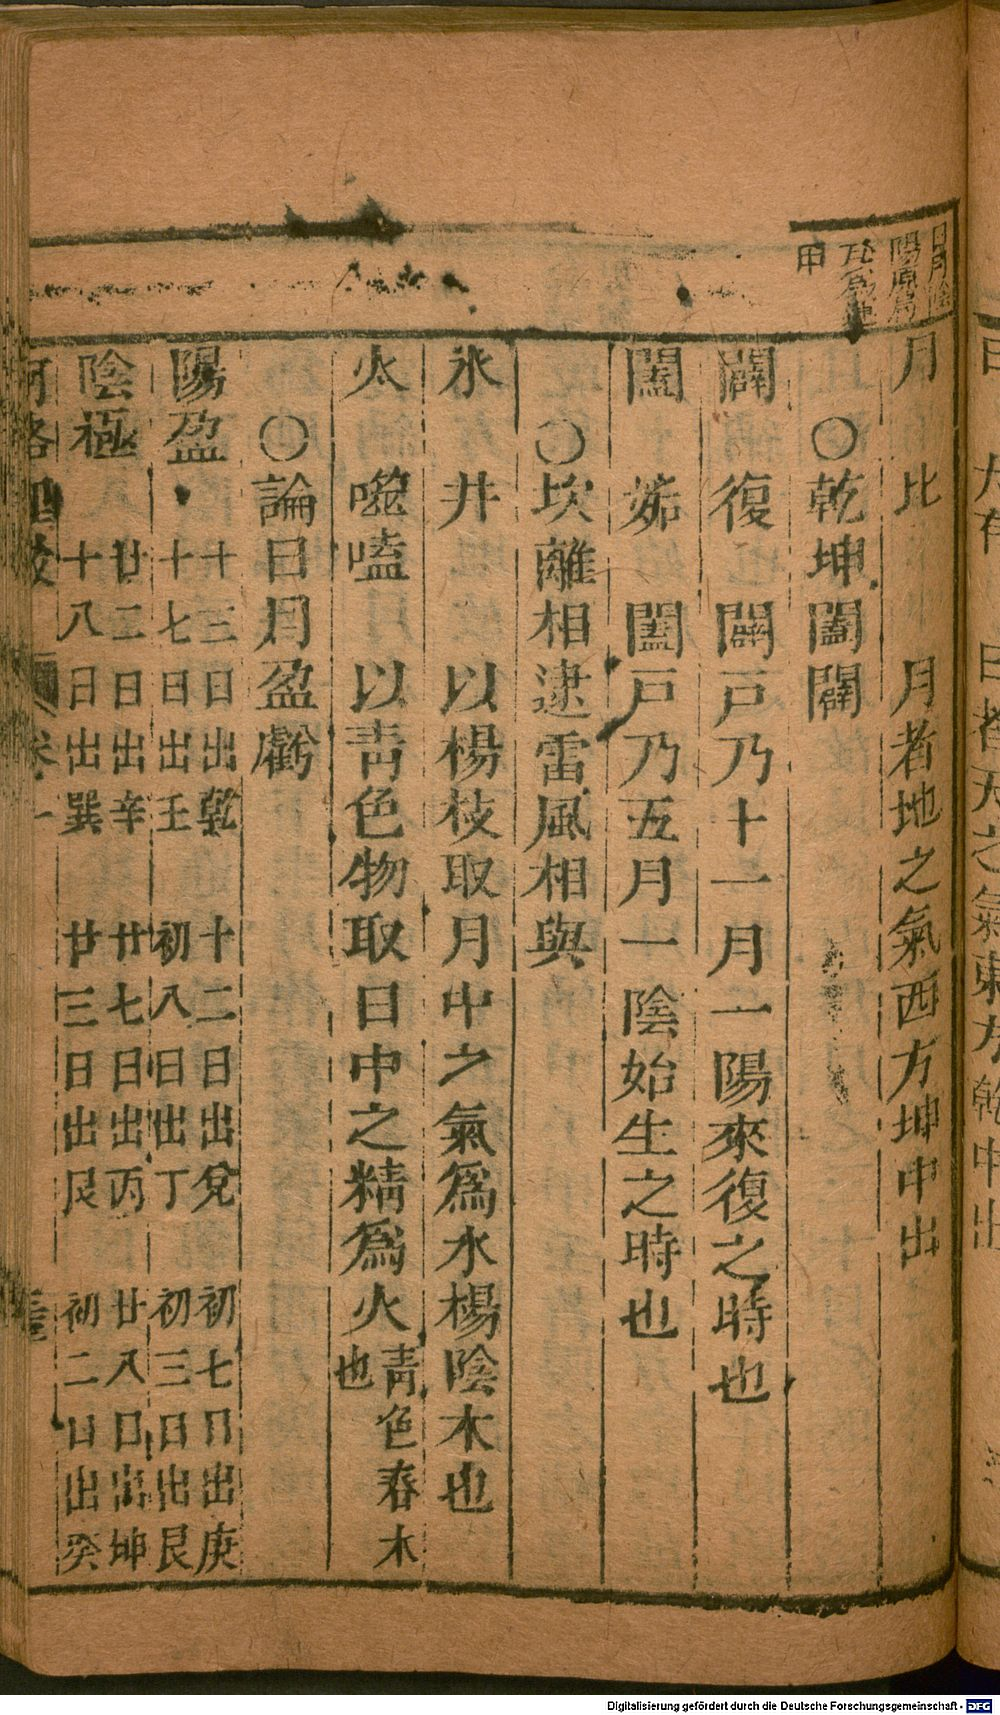 日月陰
陽原爲
甲
月　比　月者地之氣西方坤中出
○乾坤闔闢
闢　復　闢戸乃十一月一陽來復之時也
闔　姤　闔戸乃五月一陰始生之時也
○坎離相逮雷風相與
氷　井　以楊枝取月中之氣爲水楊陰木也
火　噬嗑　以青色物取日中之精爲火青色春木
也
○論日月盈虧
陽盈
十三日出乾　十二日出兌　初七日出庚
十七日出壬　初八日出丁　初三日出艮
陰極
廿二日出辛　廿七日出丙　廿八日出坤
十八日出巽　廿三日出艮　初二日出癸
日　大有　日者天之氣東方乾中出
Digitalisierung gefördert durch die Deutsche Forschungsgemeinschaft - DFG